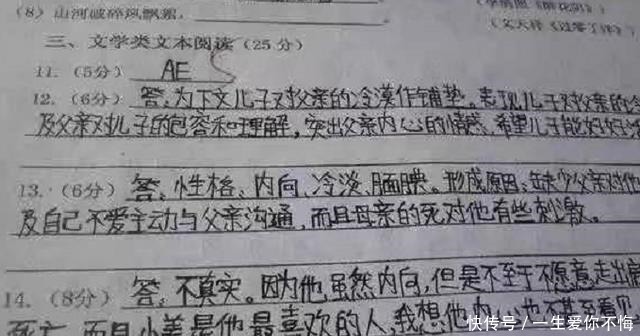 (8) 山河破碎风飘絮，
三、文学类文本阅读(25分)
11. (5分) AE
12. (6分) 答：为下文儿子对父亲的冷漠作铺垫。表现儿子对父亲的
及父亲对儿子的包容和理解，突出父亲内心的情感，希望儿子能好好
13. (6分) 答：性格：内向、冷淡、腼腆。形成原因：缺少父亲对他
及自己不爱主动与父亲沟通，而且母亲的死对他有些刺激。
14. (8分) 答：不真实。因为他虽然内向，但是不至于不愿意走出
而且小美是他最喜欢的人，我想他内 也不甚至看见
快传号/一生爱你不悔